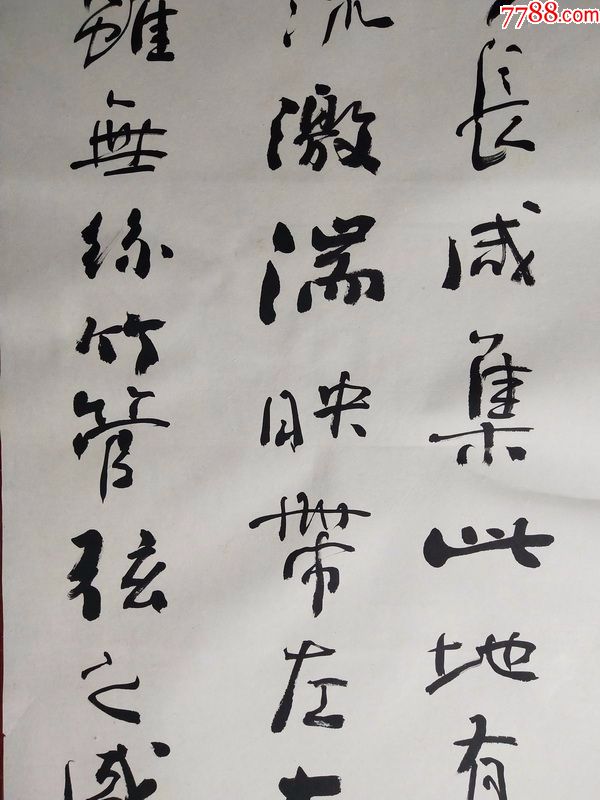 7788.com
長咸集此地有
流激湍映帶左
雖無絲竹管弦之盛